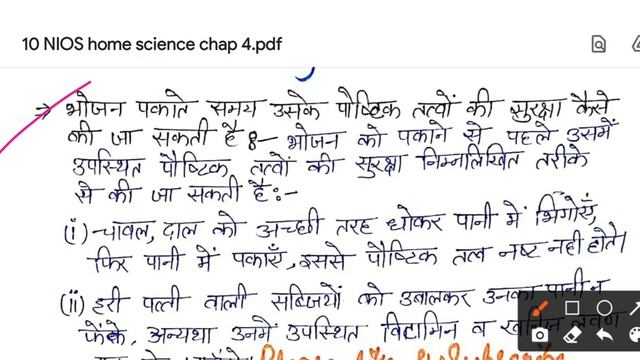 10 NIOS home science chap 4.pdf
→ भोजन पकाते समय उसके पौष्टिक तत्वों की सुरक्षा कैसे
की जा सकती है 8- भोजन को पकाने से पहले उसमें
उपस्थित पौष्टिक तत्वों की सुरक्षा निम्नलिखित तरीके
से की जा सकती है:-
(i) चावल, दाल को अच्छी तरह धोकर पानी में भिगोएँ,
फिर पानी में पकाएँ, इससे पौष्टिक तत्व नष्ट नही होते।
(ii) हरी पत्ती वाली सब्जियों को उबालकर उनका पानी न
फेंके, अन्यथा उनमें उपस्थित विटामिन व खनिज लवण